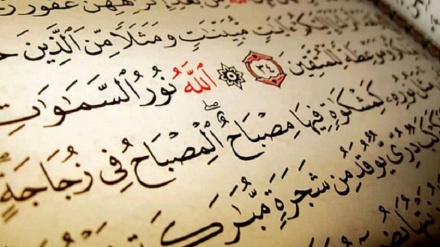 هِهِنَّ غَفُورٌ
ءَايَٰتٍ مُّبَيِّنَٰتٍ وَمَثَلًا مِّنَ ٱلَّذِينَ خَ
وَمَوْعِظَةً لِّلْمُتَّقِينَ ٣٤ ٱللَّهُ نُورُ ٱلسَّمَٰوَٰتِ
نُورِهِۦ كَمِشْكَوٰةٍ فِيهَا مِصْبَاحٌ ٱلْمِصْبَاحُ فِى زُجَاجَةٍ
دُرِّىٌّ يُوقَدُ مِن شَجَرَةٍ مُّبَٰرَكَةٍ